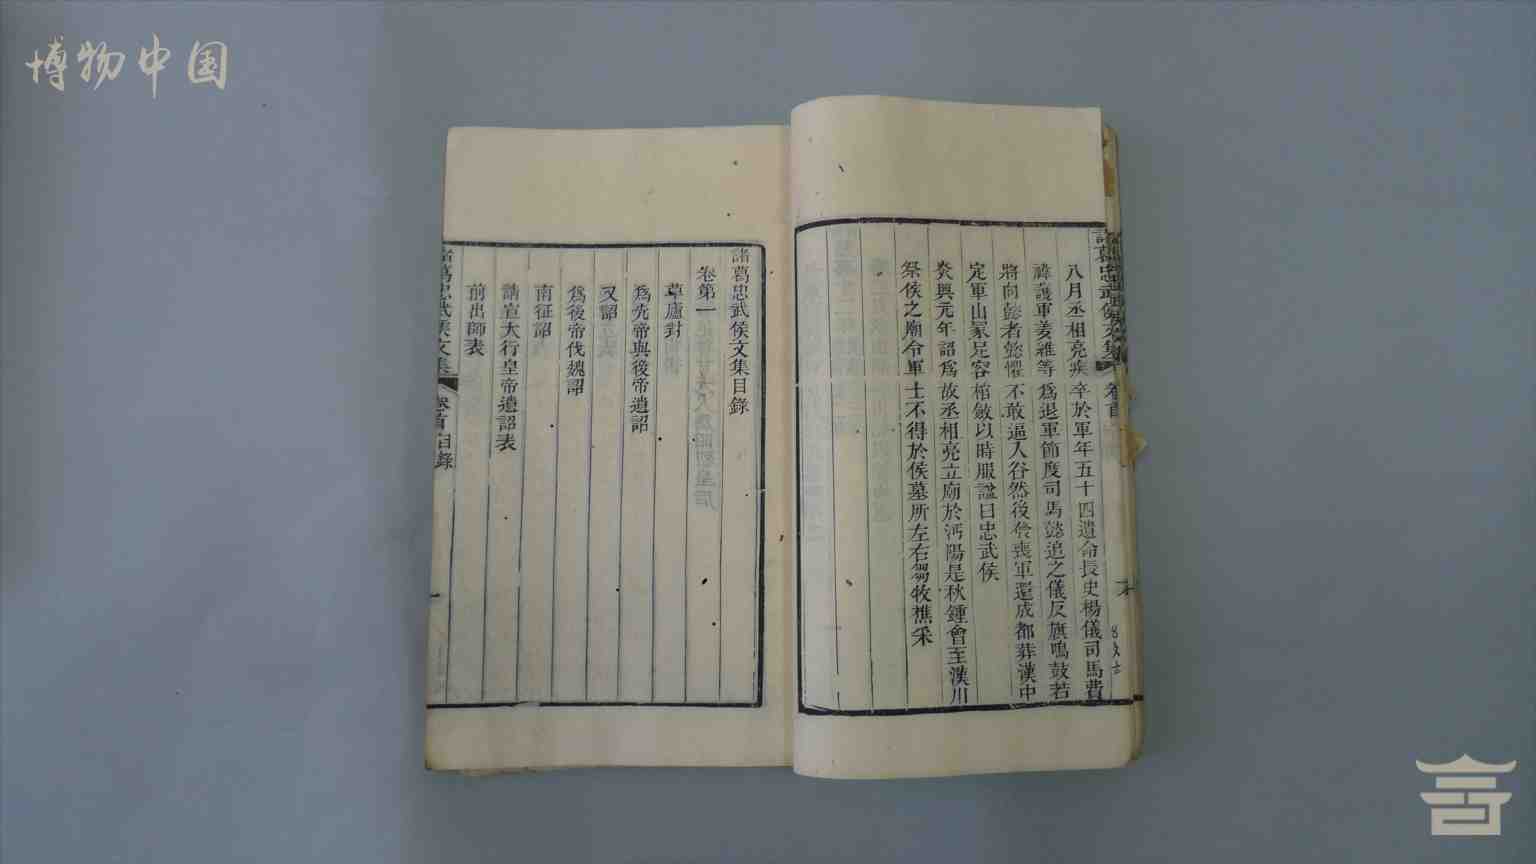 博物中国
諸葛忠武侯文集
卷首
八月丞相亮疾卒於軍年五十四遺命長史楊儀司馬費
禕護軍姜維等爲退軍節度司馬懿追之儀反旗鳴鼓若
將向懿者懿懼不敢逼入谷然後發喪軍還成都葬漢中
定軍山冢足容棺斂以時服諡曰忠武侯
炎興元年詔爲故丞相亮立廟於沔陽是秋鍾會至漢川
祭侯之廟令軍士不得於侯墓所左右芻牧樵采
諸葛忠武侯文集目錄
卷第一
草廬對
爲先帝與後帝遺詔
又詔
爲後帝伐魏詔
南征詔
請宣大行皇帝遺詔表
前出師表
諸葛忠武侯文集
卷首目錄